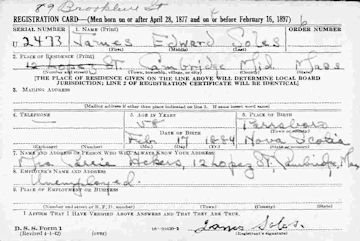 89 Brookline St
REGISTRATION CARD—(Men born on or after April 28, 1877 and on or before February 16, 1897)
SERIAL NUMBER 1. NAME (Print) ORDER NUMBER
U 2473 James Edward Soles
(First) (Middle) (Last)
2. PLACE OF RESIDENCE (Print)
12 Lopez St. Cambridge Mid Mass
(Number and street) (Town, township, village, or city) (County) (State)
[THE PLACE OF RESIDENCE GIVEN ON THE LINE ABOVE WILL DETERMINE LOCAL BOARD
JURISDICTION; LINE 2 OF REGISTRATION CERTIFICATE WILL BE IDENTICAL]
3. MAILING ADDRESS
[Mailing address if other than place indicated on line 2. If same insert word same]
4. TELEPHONE 5. AGE IN YEARS 6. PLACE OF BIRTH
58 Parrsboro
DATE OF BIRTH (Town or county)
Feb 17 1884 Nova Scotia
(Exchange) (Number) (Mo.) (Day) (Yr.) (State or country)
7. NAME AND ADDRESS OF PERSON WHO WILL ALWAYS KNOW YOUR ADDRESS
Mrs. 12 Lopez St Cambridge, Mass
8. EMPLOYER'S NAME AND ADDRESS
Unemployed
9. PLACE OF EMPLOYMENT OR BUSINESS
(Number and street or R. F. D. number) (Town) (County) (State)
I AFFIRM THAT I HAVE VERIFIED ABOVE ANSWERS AND THAT THEY ARE TRUE.
D. S. S. Form 1
(Revised 4-1-42) (over) James Soles
(Registrant's signature)